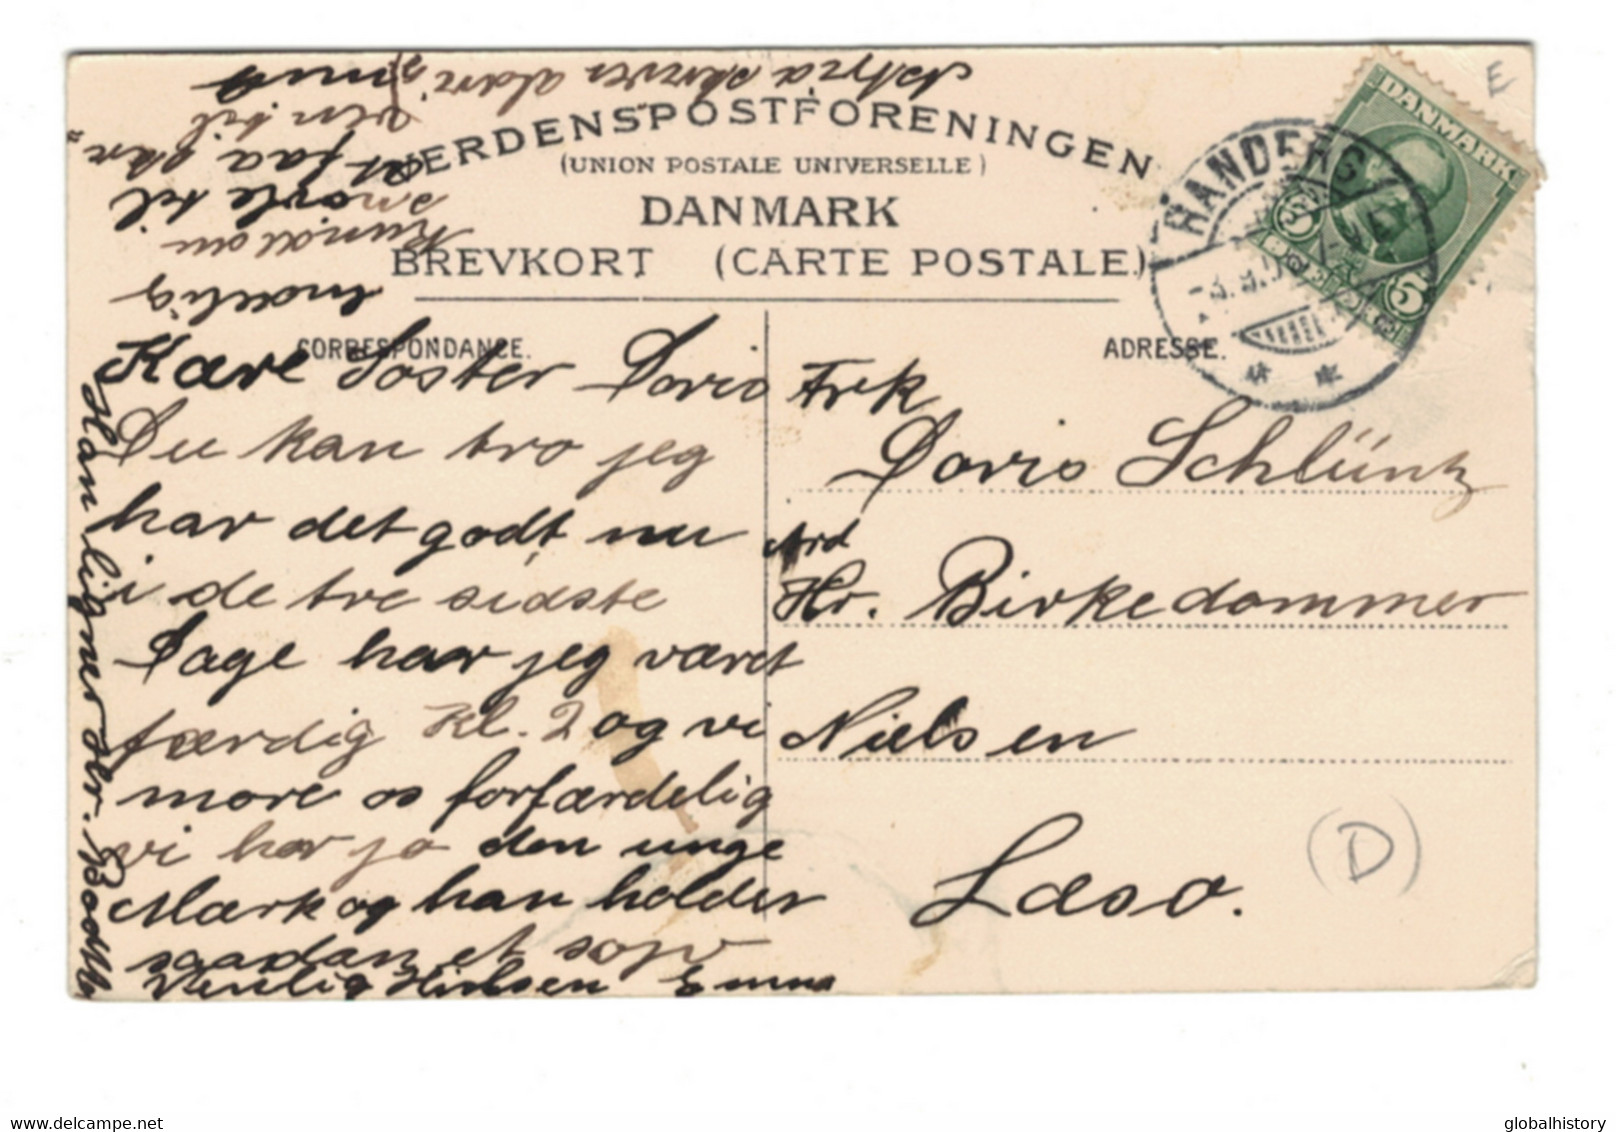 VERDENSPOSTFORENINGEN
(UNION POSTALE UNIVERSELLE)
DANMARK
BREVKORT (CARTE POSTALE)
CORRESPONDANCE.
ADRESSE.
RANDERS
DANMARK
5 5
E
Kære Søster Doris
Du kan tro jeg
har det godt nu
i de tre sidste
Dage har jeg været
færdig Kl. 2 og vi
more os forfærdelig
vi har jo den unge
Mærk og han holder
saadan et sojv
Venlig Hilsen Emma
Han ligner Hr.
skriver aldrig
til
at faa
til
Frk
Doris Schlüntz
Hr. Birkedommer
Nielsen
Læsø.
(D)
delcampe.net
globalhistory